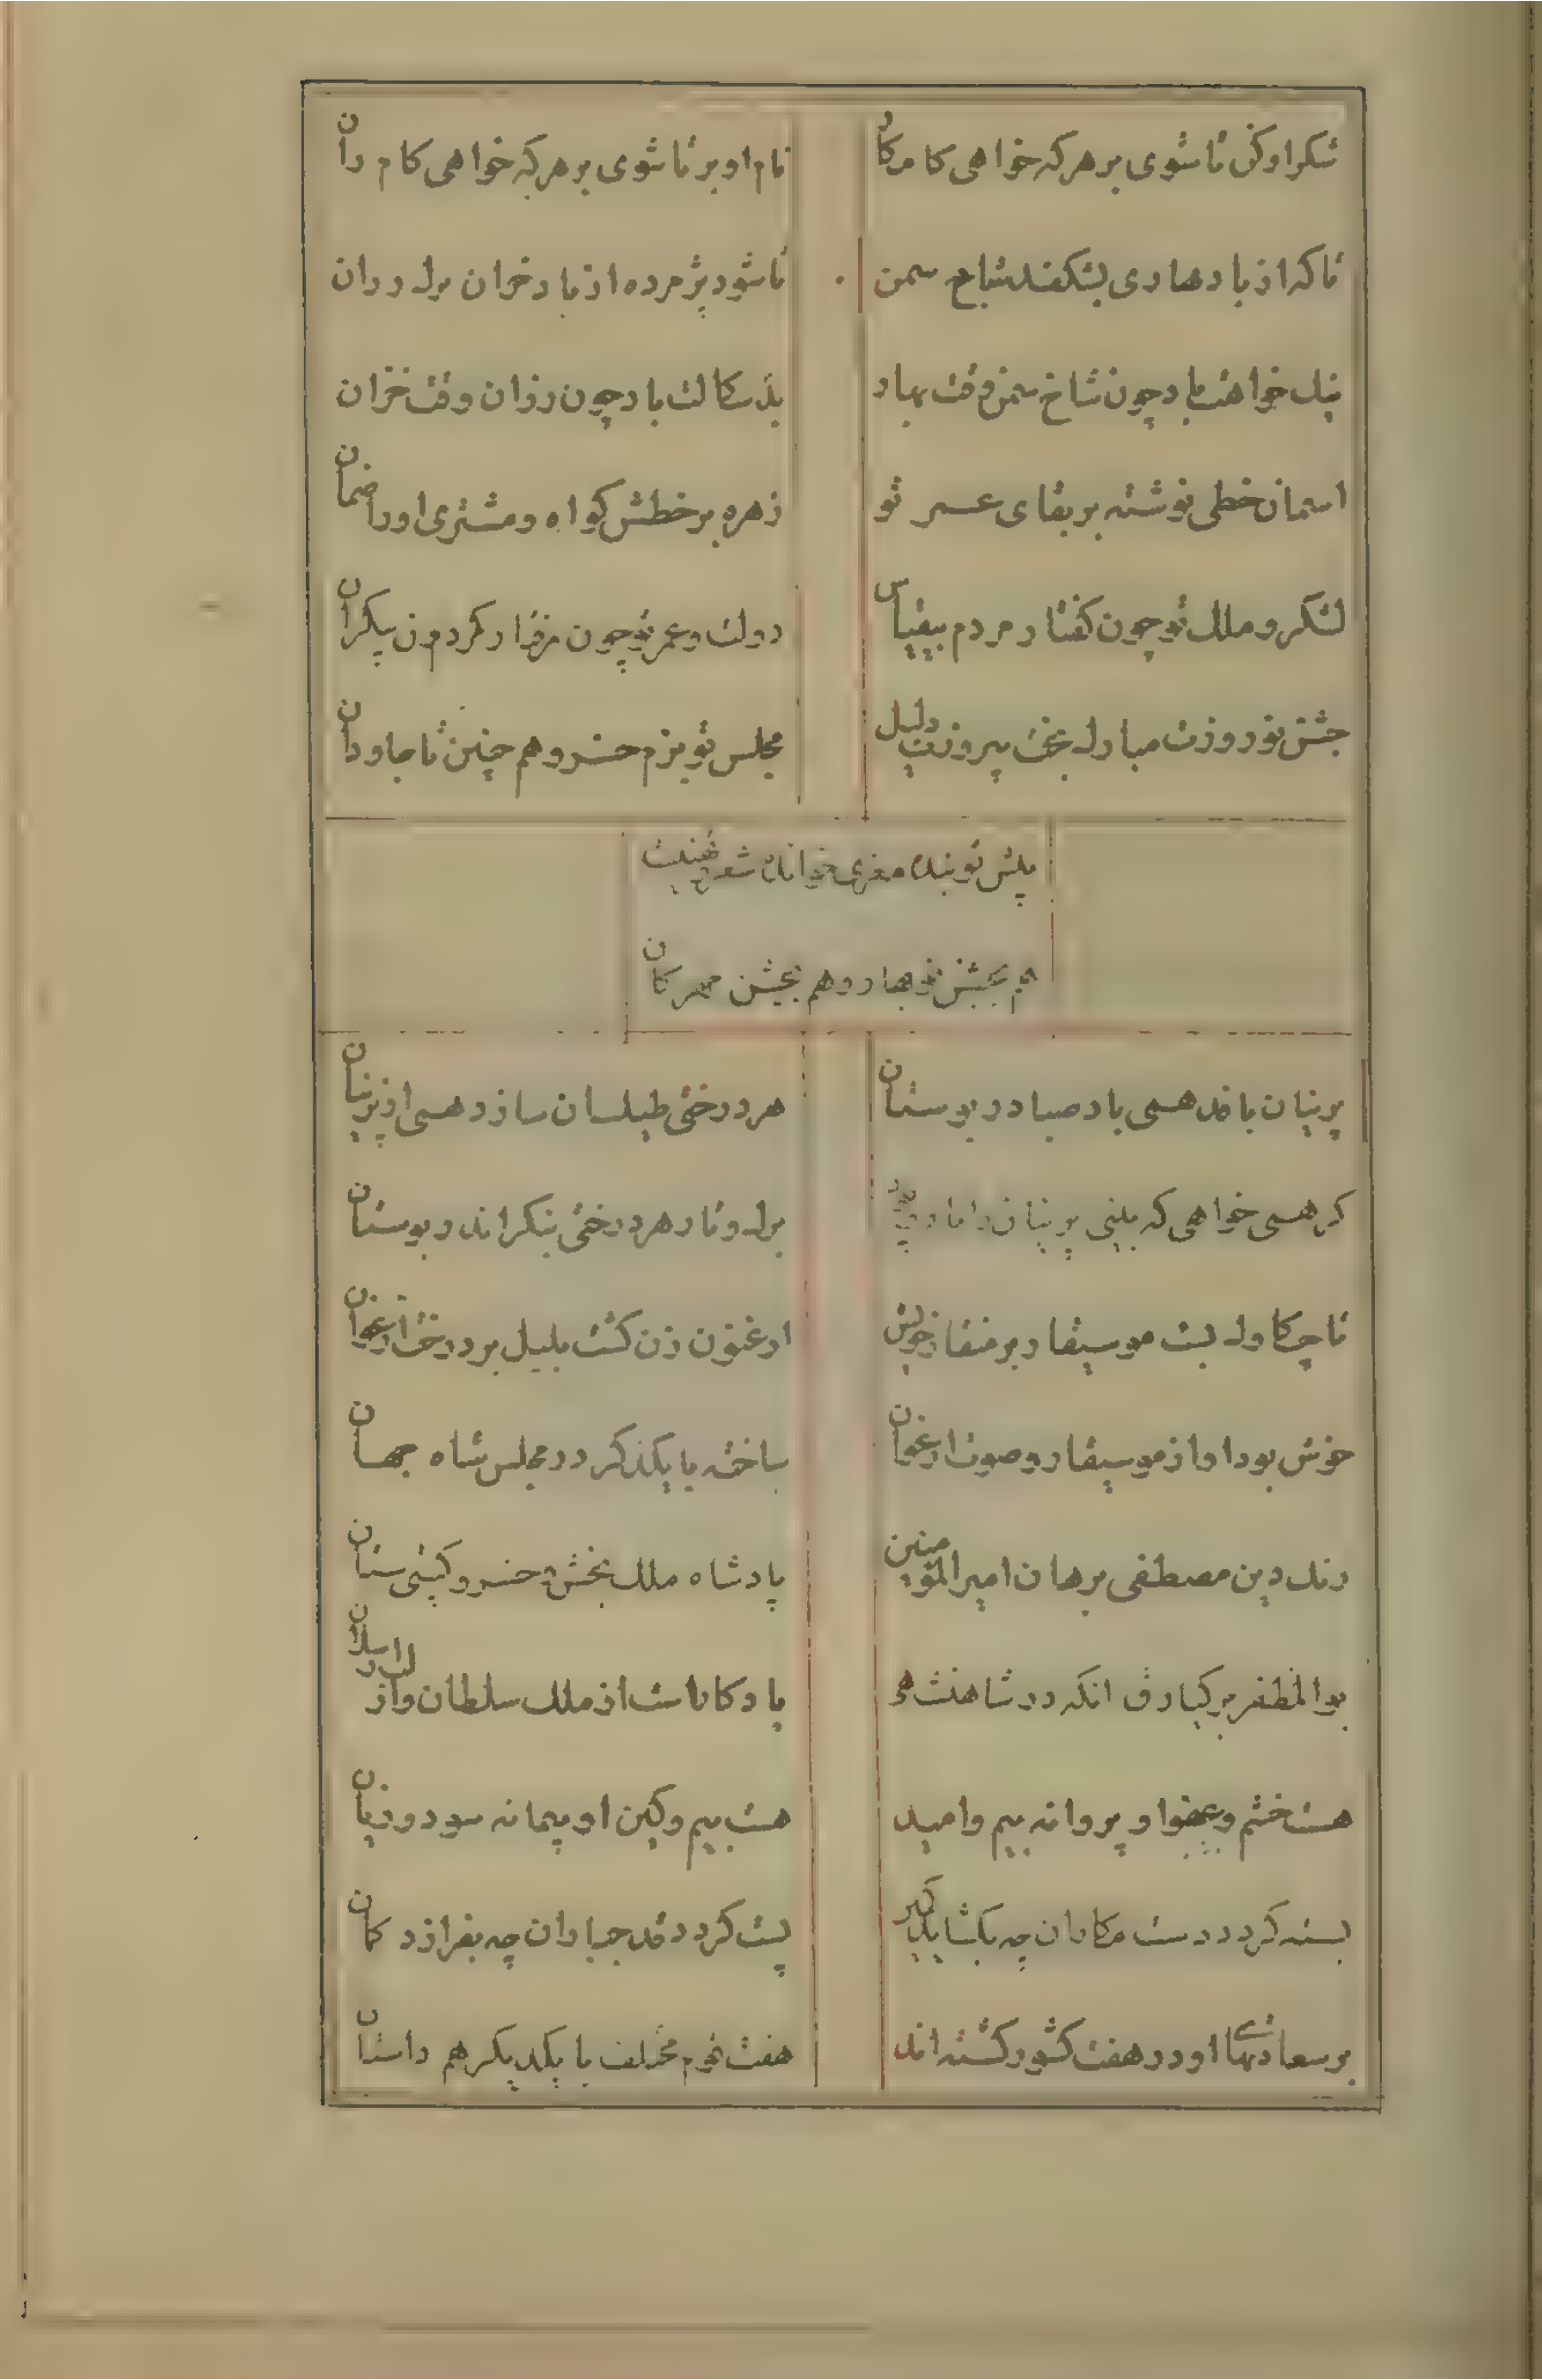 شکر او کن تا شوی بر هر که خواهی کامکار
نام او بر تا شوی بر هر که خواهی کام ران
تا که از باد بهاری بشکفد شاخ سمن
تا شود پژمرده از باد خزان برک رزان
نیک خواهت باد چون شاخ سمن وقت بهار
بد سکالت باد چون رزان وقت خزان
اسمان خطی نوشته بر بقای عمر تو
زهره بر خطش کواه و مشتری او را ضمان
لشکر و ملک تو چون کفتار مردم بیقیاس
دولت و عمر تو چون کردون بیکران
جشن نوروزت مبارک بخت پیروزت دلیل
مجلس تو بزم خسرو هم چنین تا جاودان
پیش تو بنده معزی خوانده شعر تهنیت
هم بجشن نوبهار و هم بجشن مهرکان
پرنیان بافد همی باد صبا در بوستان
هر درختی طیلسان سازد همی از پرنیان
کر همی خواهی که بینی پرنیان را
برک و بار هر درختی بنکر اندر بوستان
تا چکاوک بست موسیقار بر منقار خویش
ارغنون زن کشت بلبل بر درخت ارغوان
خوش بود اواز موسیقار و صوت ارغنون
ساخته با یکدکر در مجلس شاه جهان
رکن دین مصطفی برهان امیر المومنین
پادشاه ملک بخش و خسرو کیتی ستان
بوالمظفر برکیارق انکه در شاهنشهی
یادکارست از ملک سلطان و از الب ارسلان
هست خشم و عفو او پروانه بیم و امید
هست بیم و کین او پیمانه سود و زیان
بسته کردد دست مکاران چه بکشاید کمر
پست کردد قد جباران چه بفرازد کمان
بر سعادتهای او در هفت کشور کشته اند
هفت نجوم مختلف با یکدیکر هم داستان